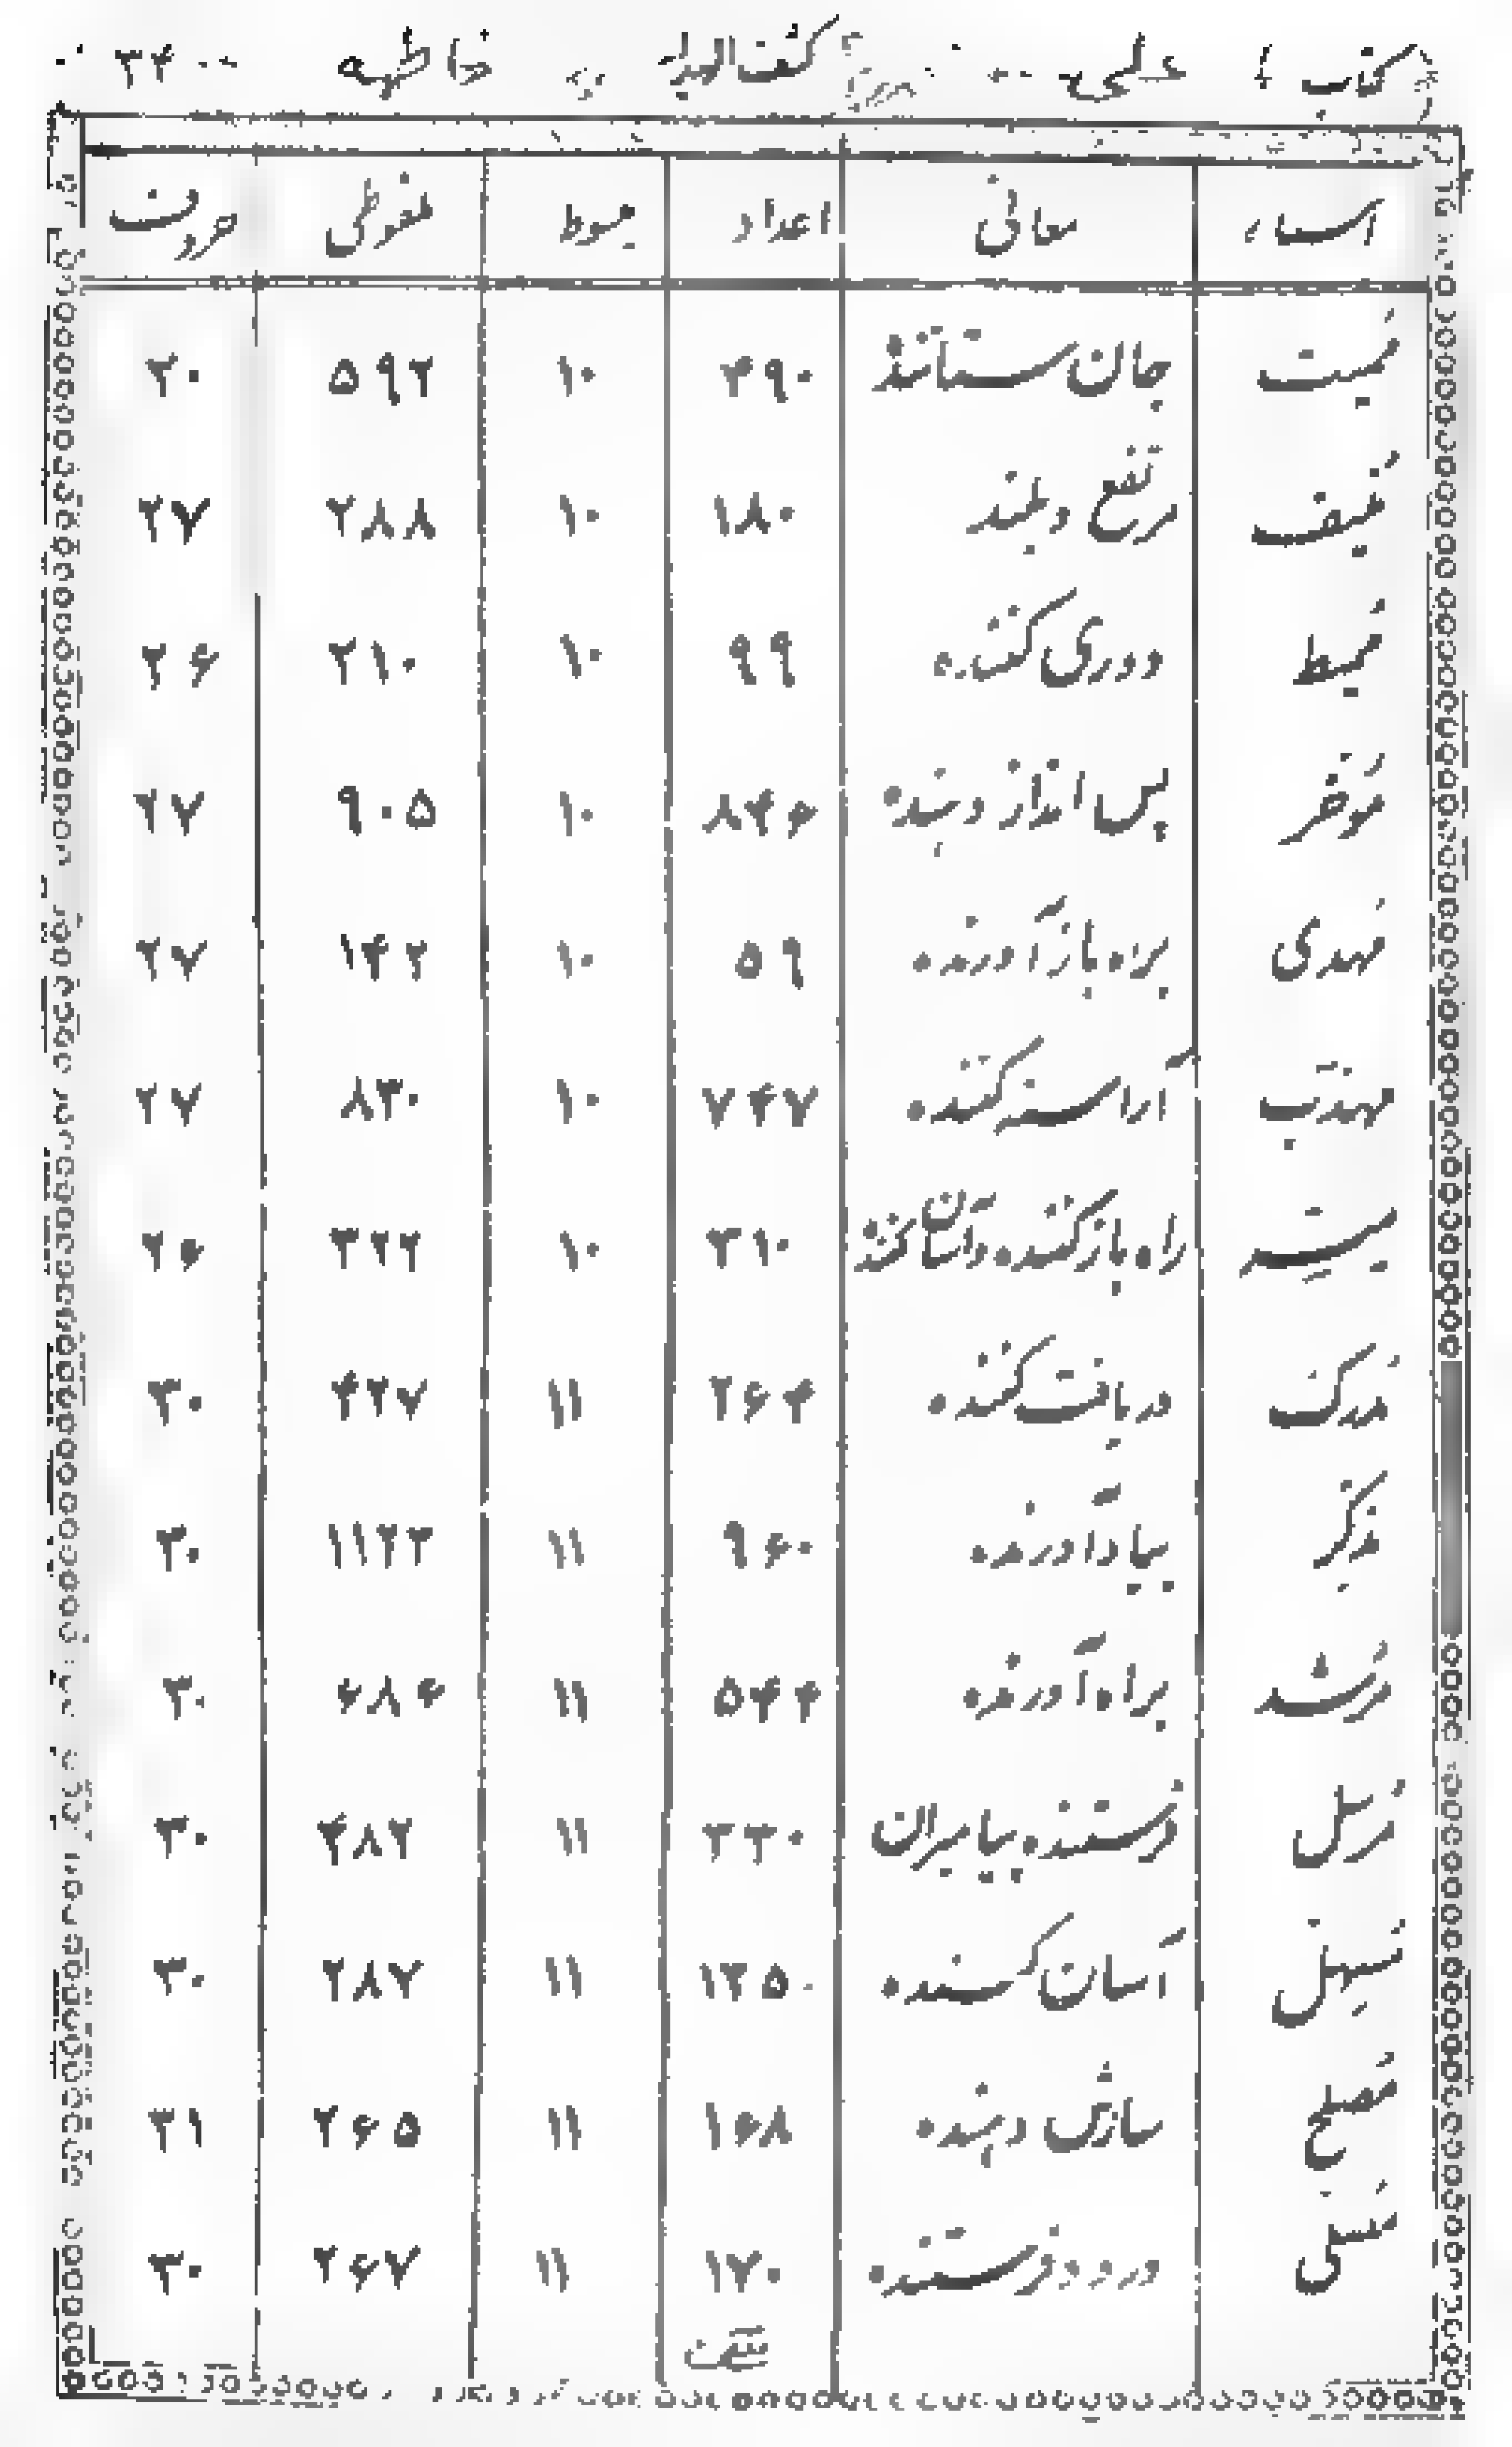 کتاب علمی کشف الهدایه فاطمه ۳۴۰۰
اسماء معانی اعداد مبسوط ملفوظی حروف
مُمیت جان ستانند ۴۹۰ ۱۰ ۵۹۲ ۲۰
مُنیف مرتفع و بلند ۱۸۰ ۱۰ ۲۸۸ ۲۷
مُمیط دوری کننده ۹۹ ۱۰ ۲۱۰ ۲۶
مُوخر پس انداز دهنده ۸۴۶ ۱۰ ۹۰۵ ۲۷
مُهدی براه باز آورنده ۵۹ ۱۰ ۱۴۲ ۲۷
مهذب آراسته کننده ۷۴۷ ۱۰ ۸۳۰ ۲۷
میسر راه باز کننده و آسان کنند ۳۱۰ ۱۰ ۳۲۲ ۲۶
مُدرک دریافت کننده ۲۶۴ ۱۱ ۴۲۷ ۳۰
مذکر بیاد آورنده ۹۶۰ ۱۱ ۱۱۲۲ ۳۰
مُرشد براه آورنده ۵۴۴ ۱۱ ۶۸۶ ۳۰
مُرسل فرستنده پیامبران ۳۳۰ ۱۱ ۴۸۲ ۳۰
مُسهل آسان کننده ۱۳۵۰ ۱۱ ۲۸۷ ۳۰
مُصلح سازش دهنده ۱۶۸ ۱۱ ۲۶۵ ۳۱
مُصلی درود فرستنده ۱۷۰ ۱۱ ۲۶۷ ۳۰